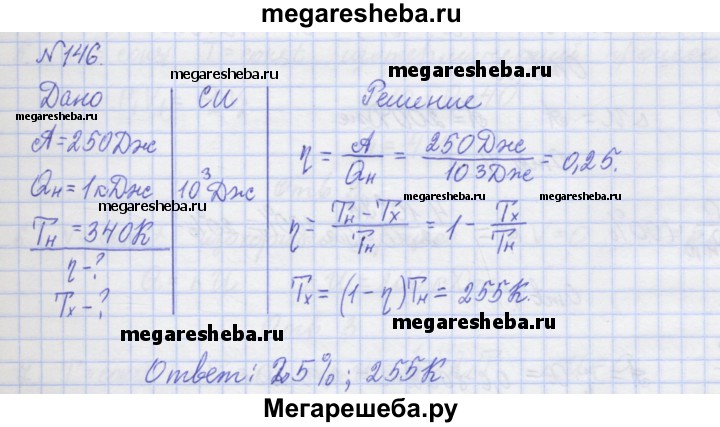 megaresheba.ru
№146.
megaresheba.ru megaresheba.ru
Дано СИ Решение
A = 250Дж
η = A/Qн = 250Дж/103Дж = 0,25.
Qн = 1кДж 10³Дж
megaresheba.ru megaresheba.ru
Tн = 340К
η = Tн - Tх/Tн = 1 - Tх/Tн
η - ?
Tх - ?
Tх = (1 - η)Tн = 255К.
megaresheba.ru megaresheba.ru
Ответ: 25%; 255К
Мегарешеба.ру